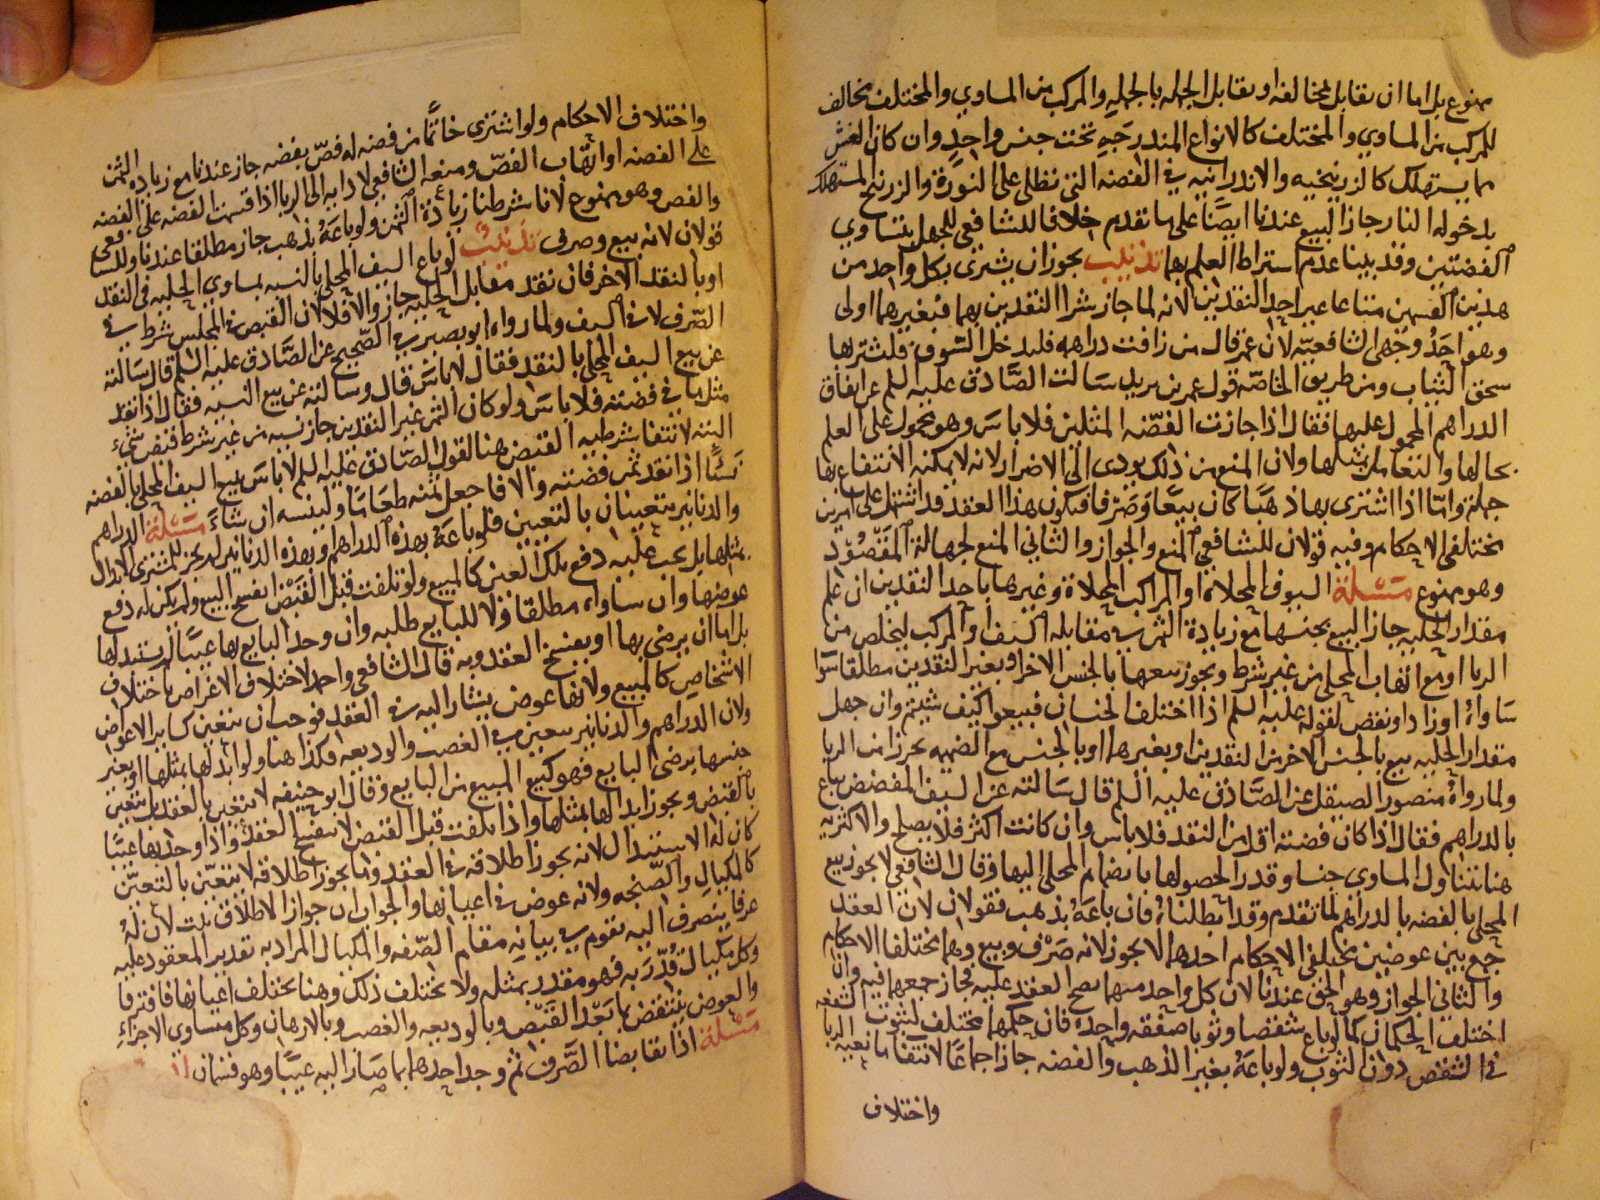 ممنوع بل اما ان يقابل مخالفه او يقابل الجمله بالجمله والمركب من المساوي والمختلف مخالف
للمركب من المساوي والمختلف كالانواع المندرجه تحت جنس واحد وان كان الغش
مما يستهلك كالزرنيخيه والاندرانيه في الفضه التي تطلى على النورة والزرنيخ المستهلك
بدخوله النار جاز البيع عندنا ايضا على ما تقدم خلافا للشافعي للجهل بتساوي
الفضتين وقد بينا عدم اشتراط العلم بهما تذنيب يجوز ان يشترى بكل واحد من
هذين القسمين متاعا غير احد النقدين لانه لما جاز شرا النقدين بهما فبغيرهما اولى
وهو احد وجهي الشافعيه لان عمر قال من زافت دراهمه فليدخل السوق فليشتر بها
سحق الثياب ومن طريق الخاصه قول عمر بن يزيد سالت الصادق عليه السلم عن انفاق
الدراهم المحمول عليها فقال اذا جازت الفضه المثلين فلا باس وهو محمول على العلم
بحالها والتعامل بمثلها ولان المنع من ذلك يودي الى الاضرار لانه لا يمكنه الانتفاع بها
جملة واما اذا اشترى بها ذهبا كان بيعا وصرفا فيكون هذا العقد قد اشتمل على امرين
مختلفي الاحكام وفيه قولان للشافعي المنع والجواز والثاني المنع لجهالة المقصود
وهو ممنوع مسئلة السيوف المحلاة او المراكب المحلاة وغيرها باحد النقدين ان علم
مقدار الحليه جاز البيع بجنسها مع زيادة الثمن في مقابله السيف او المركب ليخلص من
الربا او مع اتهاب المحلى من غير شرط ويجوز بيعها بالجنس الاخر او بغير النقدين مطلقا سوا
ساواه او زاد او نقص لقوله عليه السلم اذا اختلف الجنسان فبيعوا كيف شيتم وان جهل
مقدار الحليه بيع بالجنس الاخر من النقدين او بغيرهما او بالجنس مع الضميمه تحرزا من الربا
ولما رواه منصور الصيقل عن الصادق عليه السلم قال سالته عن السيف المفضض يباع
بالدراهم فقال اذا كان فضته اقل من النقد فلا باس وان كانت اكثر فلا يصلح والاكثريه
هنا تتناول المساوي جنسا وقدرا لحصولها بانضمام المحلى اليها وقال الشافعي لا يجوز بيع
المحلى بالفضه بالدراهم لما تقدم وقد ابطلناه فان باعه بذهب فقولان لان العقد
جمع بين عوضين مختلفي الاحكام احدهما لا يجوز لانه صرف وبيع وهما مختلفا الاحكام
والثاني الجواز وهو الحق عندنا لان كل واحد منهما يصح العقد عليه فجاز جمعهما فيه وان
اختلف الحكمان كما لو باع شقصا وثوبا صفقه واحدة فان حكمهما مختلف لثبوت الشفعه
في الشقص دون الثوب ولو باعه بغير الذهب والفضه جاز اجماعا لانتفا مانعيه الربا
واختلاف
واختلاف الاحكام ولو اشترى خاتما من فضه له فص بفضه جاز عندنا مع زياده الثمن
على الفضه او اتهاب الفص ومنعه الشافعي لادايه الى الربا اذا قسمت الفضه على الفضه
والفص وهو ممنوع لانا شرطنا زيادة الثمن ولو باعه بذهب جاز مطلقا عندنا وللشافعي
قولان لانه بيع وصرف تذنيب لو باع السيف المحلى بالنسيه بمساوي الحليه في النقد
او بالنقد الاخر فان نقد مقابل الحليه جاز والا فلا لان القبض في المجلس شرط في
الصرف لا في السيف ولما رواه ابو بصير في الصحيح عن الصادق عليه السلم قال سالته
عن بيع السيف المحلى بالنقد فقال لا باس قال وسالته عن بيع النسيه فقال اذا نقد
مثل ما في فضته فلا باس ولو كان الثمن غير النقدين جاز نسيه من غير شرط قبض شيء
البته لانتفا شرطيه القبض هنا لقول الصادق عليه السلم لا باس ببيع السيف المحلى بالفضه
نسئا اذا نقد ثمن فضته والا فاجعل ثمنه طعاما ولينسه ان شاء مسئلة الدراهم
والدنانير متعينان بالتعيين فلو باعه بهذه الدراهم او بهذه الدنانير لم يجز للمشتري الابدال
بمثلها بل يجب عليه دفع تلك العين كالمبيع ولو تلفت قبل القبض انفسخ البيع ولم يكن له دفع
عوضها وان ساواه مطلقا ولا للبايع طلبه وان وجد البايع بها عيبا لم يستبدلها
بل اما ان يرضى بها او يفسخ العقد وبه قال الشافعي واحمد لاختلاف الاغراض باختلاف
الاشخاص كالمبيع ولانها عوض يشار اليه في العقد فوجب ان يتعين كساير الاعواض
ولان الدراهم والدنانير يتعين في الغصب والوديعه فكذا هنا ولو ابدلها بمثلها او بغير
جنسها برضى البايع فهو كبيع المبيع من البايع وقال ابو حنيفه لا يتعين بالعقد بل يتعين
بالقبض ويجوز ابدالها بمثلها واذا تلفت قبل القبض لا ينفسخ العقد واذا وجد بها عيبا
كان له الاستبدال لانه يجوز اطلاقه في العقد وما يجوز اطلاقه لا يتعين بالتعين
كالمكيال والصنجه ولانه عوض في اعيانها والجواب ان جواز الاطلاق يثبت لان له
عرفا ينصرف اليه يقوم في بيانه مقام الصفه والمكيال المراد به تقدير المعقود عليه
وكل مكيال قدر به فهو مقدر بمثله ولا يختلف ذلك وهنا يختلف اعيانها فافترقا
والعوض ينتقض بما بعد القبض وبالوديعه والغصب وبالارهان وكل متساوي الاجزاء
مسئلة اذا تقابضا الصرف ثم وجد احدهما بما صار اليه عيبا وهو قسمان